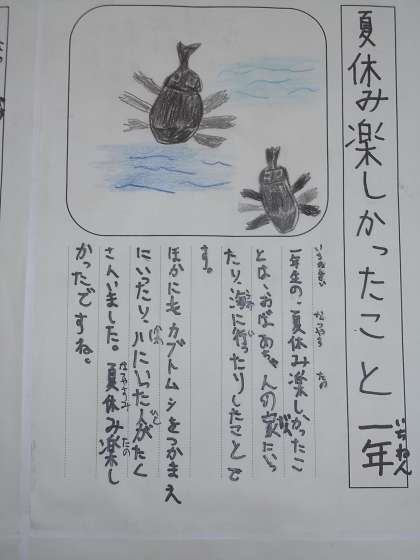 夏休み楽しかったこと 一年
いちねん
一年生の、夏休み楽しかったこ
とは、おばあちゃんの家にいっ
たり、海に行ったりしたことで
す。
ほかにもカブトムシをつかまえ
にいったり、川にいった人がたく
さんいました。夏休み楽し
かったですね。